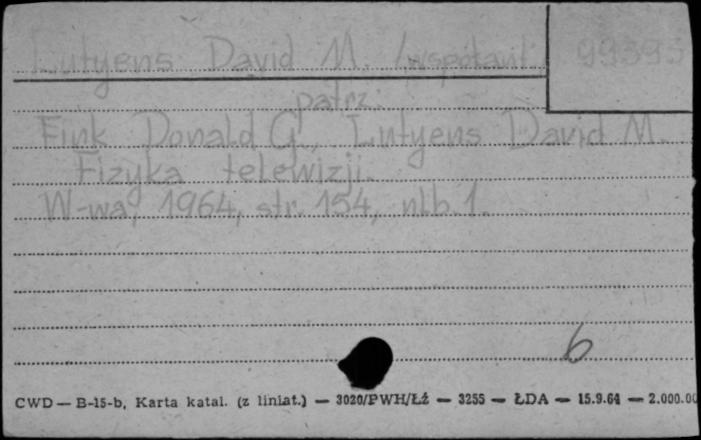 Lutyens David M. /współaut. 99395
patrz:
Fink Donald G., Lutyens David M.
Fizyka telewizji.
W-wa, 1964, str. 154, nlb. 1.
6
CWD — B-15-b, Karta katal. (z liniat.) — 3020/PWH/Łź — 3255 — ŁDA — 15.9.64 — 2.000.00